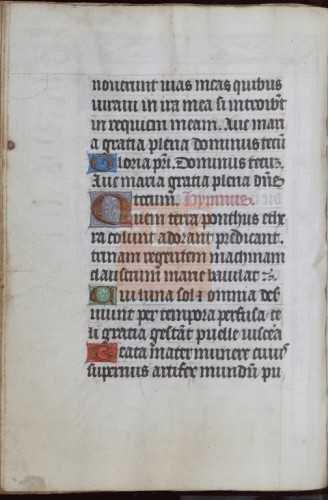 nouerunt uias meas quibus
iuraui in ira mea si introibūt
in requiem meam. Aue mari
a gratia plena dominus tecū
Gloria pr̄i. Dominus tecuȝ.
Aue maria gratia plena dn̄s
tecum. Hypnus.
Quem terra ponthus ethe
ra colunt adorant predicant.
trinam regentem machinam
claustrum marie baiulat
Cui luna sol ⁊ omnia des
uiunt per tempora perfusa ce
li gratia gestāt puelle uiscera
Beata mater munere cuius
supernus artifex mundū pu